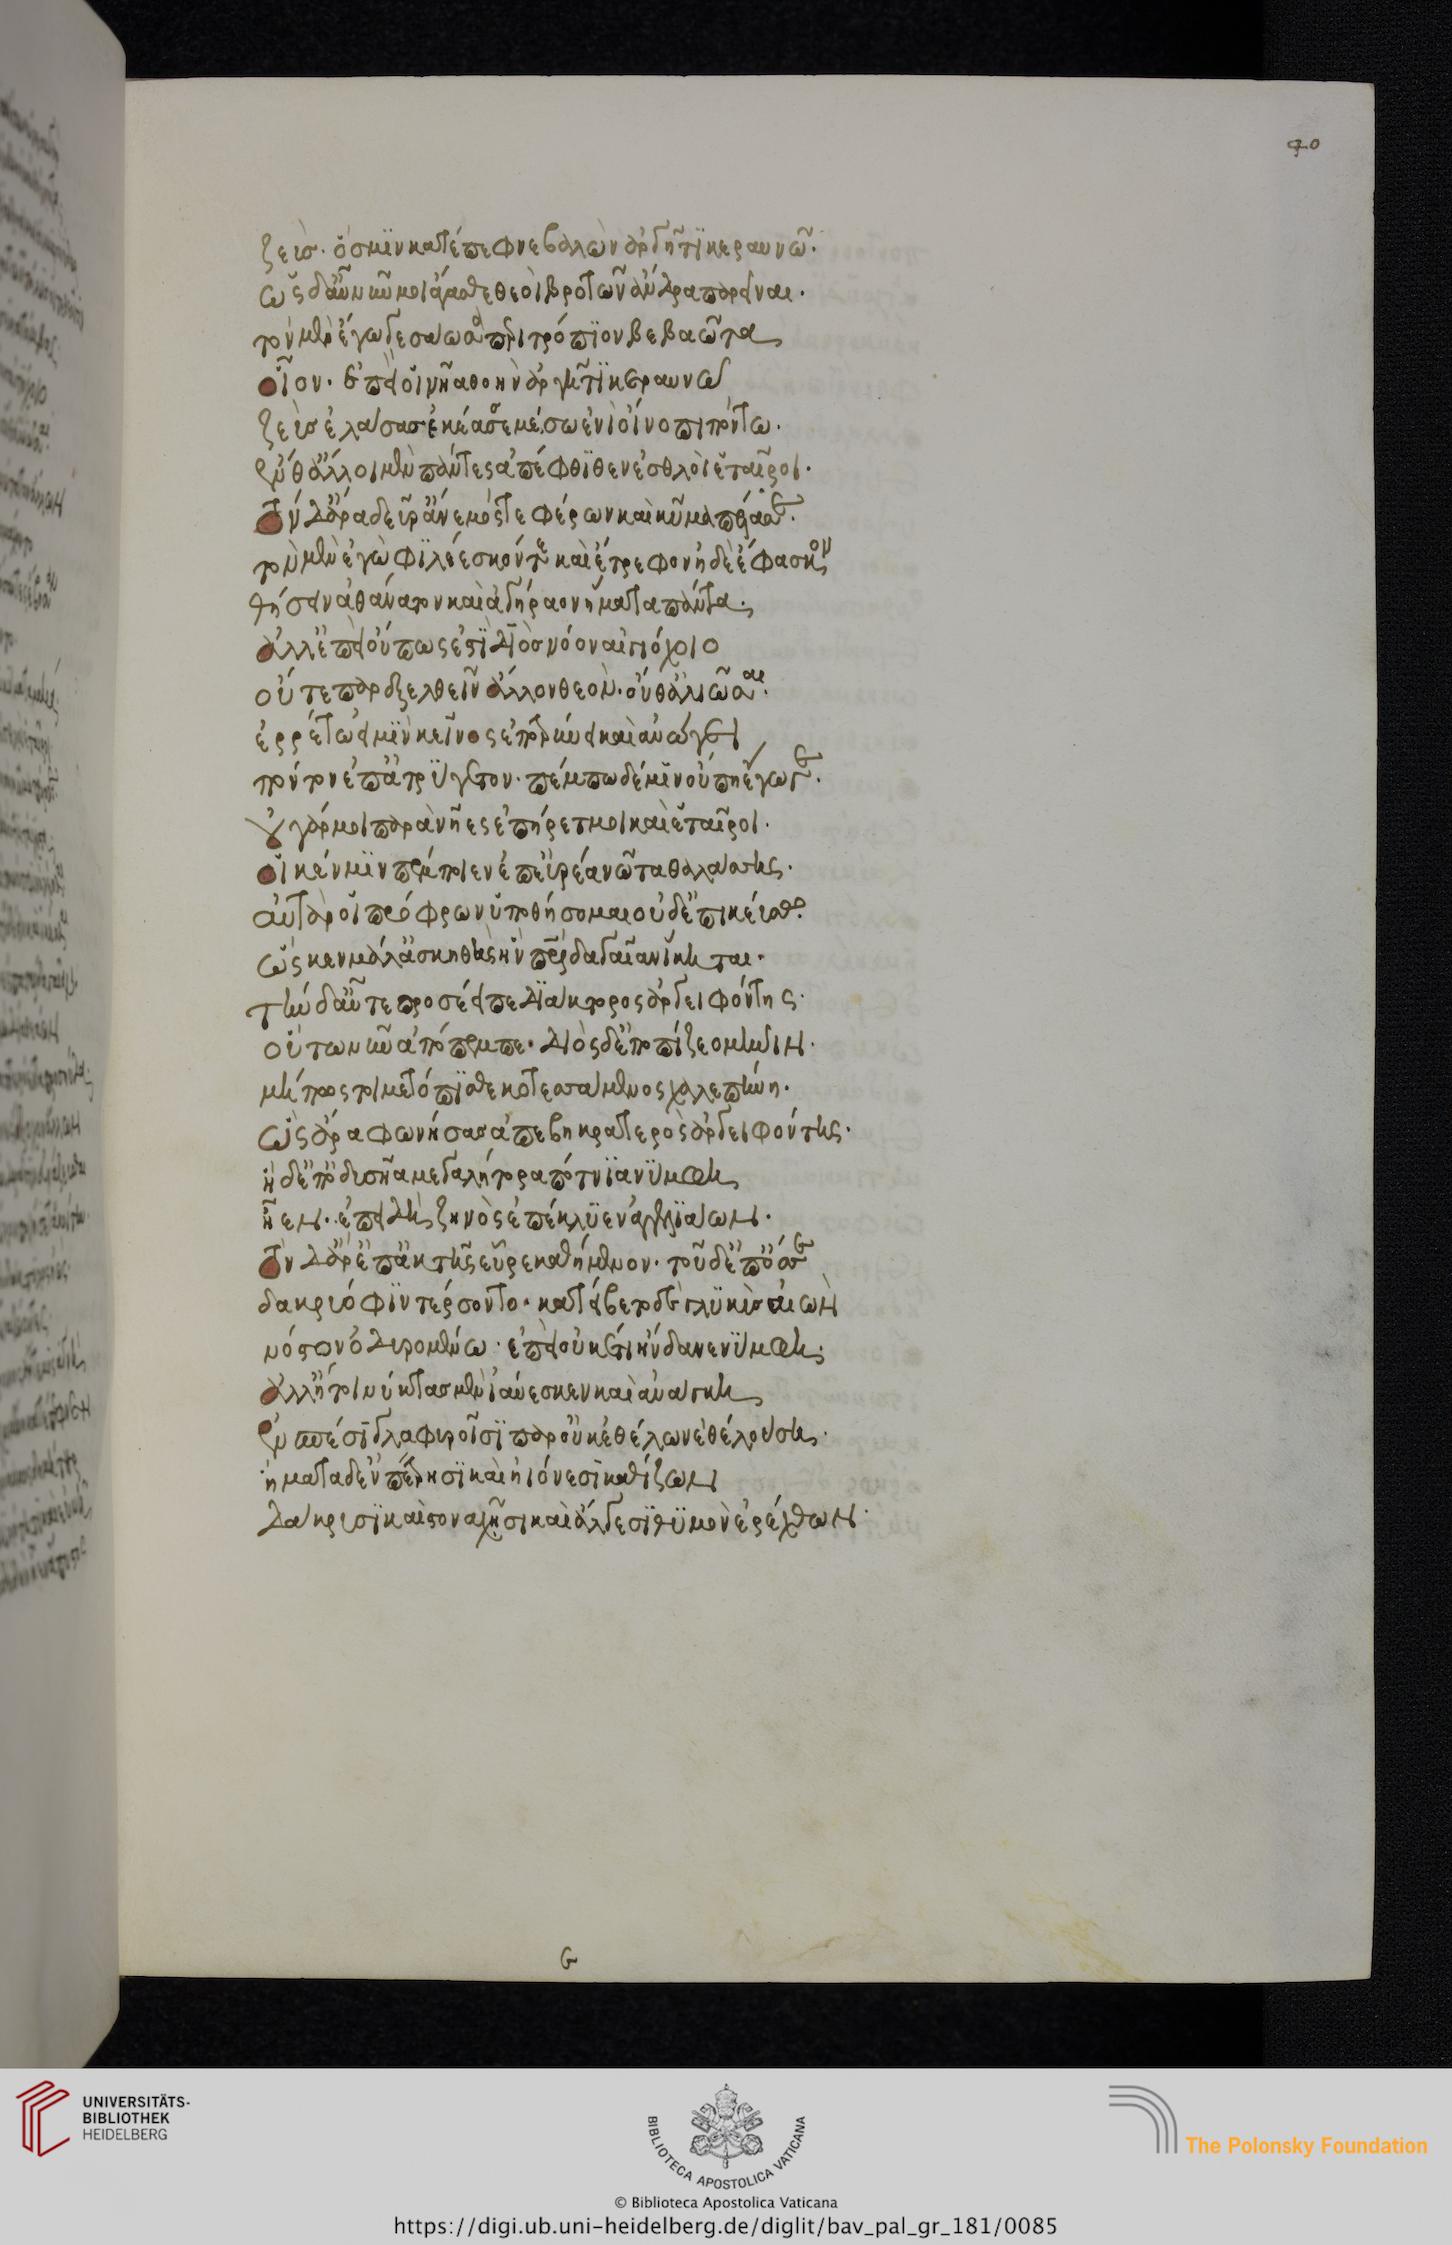 70
ζεὺς· ὅς μιν κατέπεφνε βαλὼν ἀργῆτι κεραυνῶ·
ὣς δ' αὖ νῦν μοι ἄγασθε θεοὶ βροτῶν ἄνδρα παρεῖναι·
τὸν μὲν ἐγὼ δ' ἐσάωσα περὶ τρόπιον βεβαῶτα,
οἶον· ἐπεί οἱ νῆα θοὴν ἀργῆτι κεραυνῶ
ζεὺς ἐλάσας ἐκέασσε μέσω ἐνὶ οἴνοπι πόντω·
ἔνθ' ἄλλοι μὲν πάντες ἀπέφθιθεν ἐσθλοὶ ἑταῖροι·
τὸν δ' ἄρα δεῦρ' ἄνεμός τε φέρων καὶ κῦμα πέλασσε·
τὸν μὲν ἐγὼ φιλέεσκόν τε καὶ ἔτρεφον ἠδὲ ἔφασκον,
θήσειν ἀθάνατον καὶ ἀγήραον ἤματα πάντα·
ἀλλ' ἐπεὶ οὔπως ἐστὶ διὸς νόον αἰγιόχοιο
οὔτε παρεξελθεῖν ἄλλον θεὸν· οὔθ' ἁλιῶσαι·
ἐρρέτω εἴ μιν κεῖνος ἐποτρύνει καὶ ἀνώγει
πόντον ἐπ' ἀτρύγετον· πέμπω δέ μιν οὔπη ἔγωγε·
οὐ γάρ μοι πάρα νῆες ἐπήρετμοι καὶ ἑταῖροι·
οἵ κέν μιν πέμποιεν ἐπ' εὐρέα νῶτα θαλάσσης·
αὐτάρ οἱ πρόφρων ὑποθήσομαι οὐδ' ἐπικεύσω·
ὥς κεν μάλ' ἀσκηθὴς ἣν πατρίδα γαῖαν ἵκηται·
τὴν δ' αὖτε προσέειπε διάκτορος ἀργειφόντης·
οὕτω νῦν ἀπόπεμπε· διὸς δ' ἐποπίζεο μῆνιν·
μή πως τοι μετόπισθε κοτεσσάμενος χαλεπήνη·
ὣς ἄρα φωνήσας ἀπέβη κρατερὸς ἀργειφόντης·
ἡ δ' ἐπ' ὀδυσῆα μεγαλήτορα πότνια νύμφη,
ἤεν· ἐπεὶ δὴ ζηνὸς ἐπέκλυεν ἀγγελιάων·
τὸν δ' ἄρ' ἐπ' ἀκτῆς εὗρε καθήμενον· τοῦ δέ ποτ' ὄσσε
δακρυόφιν τέρσοντο· κατείβετο δὲ γλυκὺς αἰὼν
νόστον ὀδυρομένω· ἐπεὶ οὐκέτι ἥνδανε νύμφη·
ἀλλ' ἤτοι νύκτας μὲν ἰαύεσκεν καὶ ἀνάγκη,
ἐν σπέσι γλαφυροῖσι παρ' οὐκ ἐθέλων ἐθελούση·
ἤματα δ' ἐν πέτρησι καὶ ἠιόνεσι καθίζων
δάκρυσι καὶ στοναχῆσι καὶ ἄλγεσι θυμὸν ἐρέχθων·
UNIVERSITÄTS-
BIBLIOTHEK
HEIDELBERG
BIBLIOTECA APOSTOLICA VATICANA
The Polonsky Foundation
© Biblioteca Apostolica Vaticana
https://digi.ub.uni-heidelberg.de/diglit/bav_pal_gr_181/0085